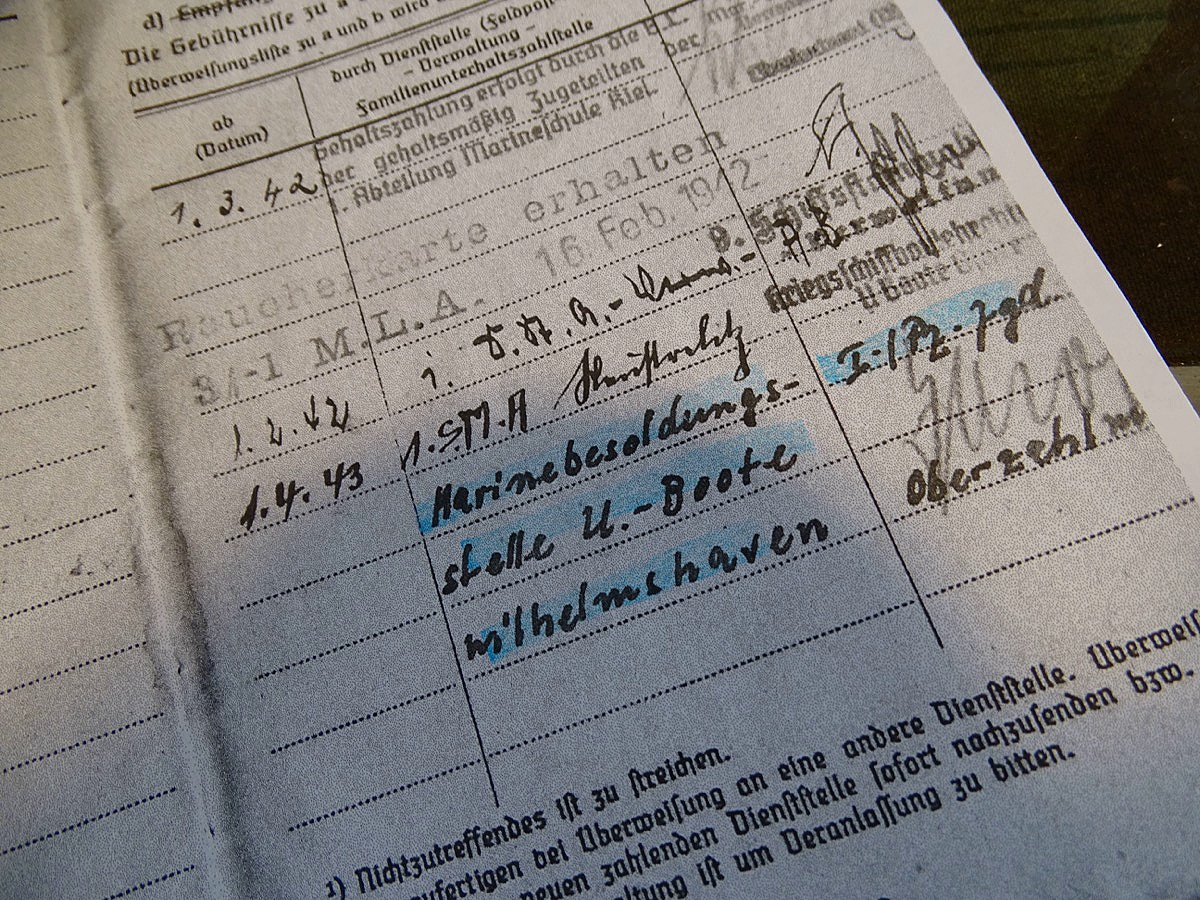 d) Empfang
Die Gebührnisse zu a und b wird
(Überweisungsliste zu a und b wird
ab
(Datum)
durch Dienststelle (Feldpost
– Verwaltung –
Familienunterhaltszahlstelle
1. 3. 42
Gehaltszahlung erfolgt durch die
der gehaltsmäßig Zugeteilten
Abteilung Marineschule Kiel.
Raucherkarte erhalten
3/-1 M.L.A. 16. Feb. 1942
9.
Kriegsschiffbaulehrabt
U boote
1. 2. 42
1. S.M.A
1. 4. 43
Marinebesoldungs-
stelle U.-Boote
Wilhelmshaven
I./Pz. Jgd.
Oberzahlm
1) Nichtzutreffendes ist zu streichen.
zufertigen bei Überweisung an eine andere Dienststelle. Überweis
neuen zahlenden Dienststelle sofort nachzusenden bzw.
altung ist um Veranlassung zu bitten.